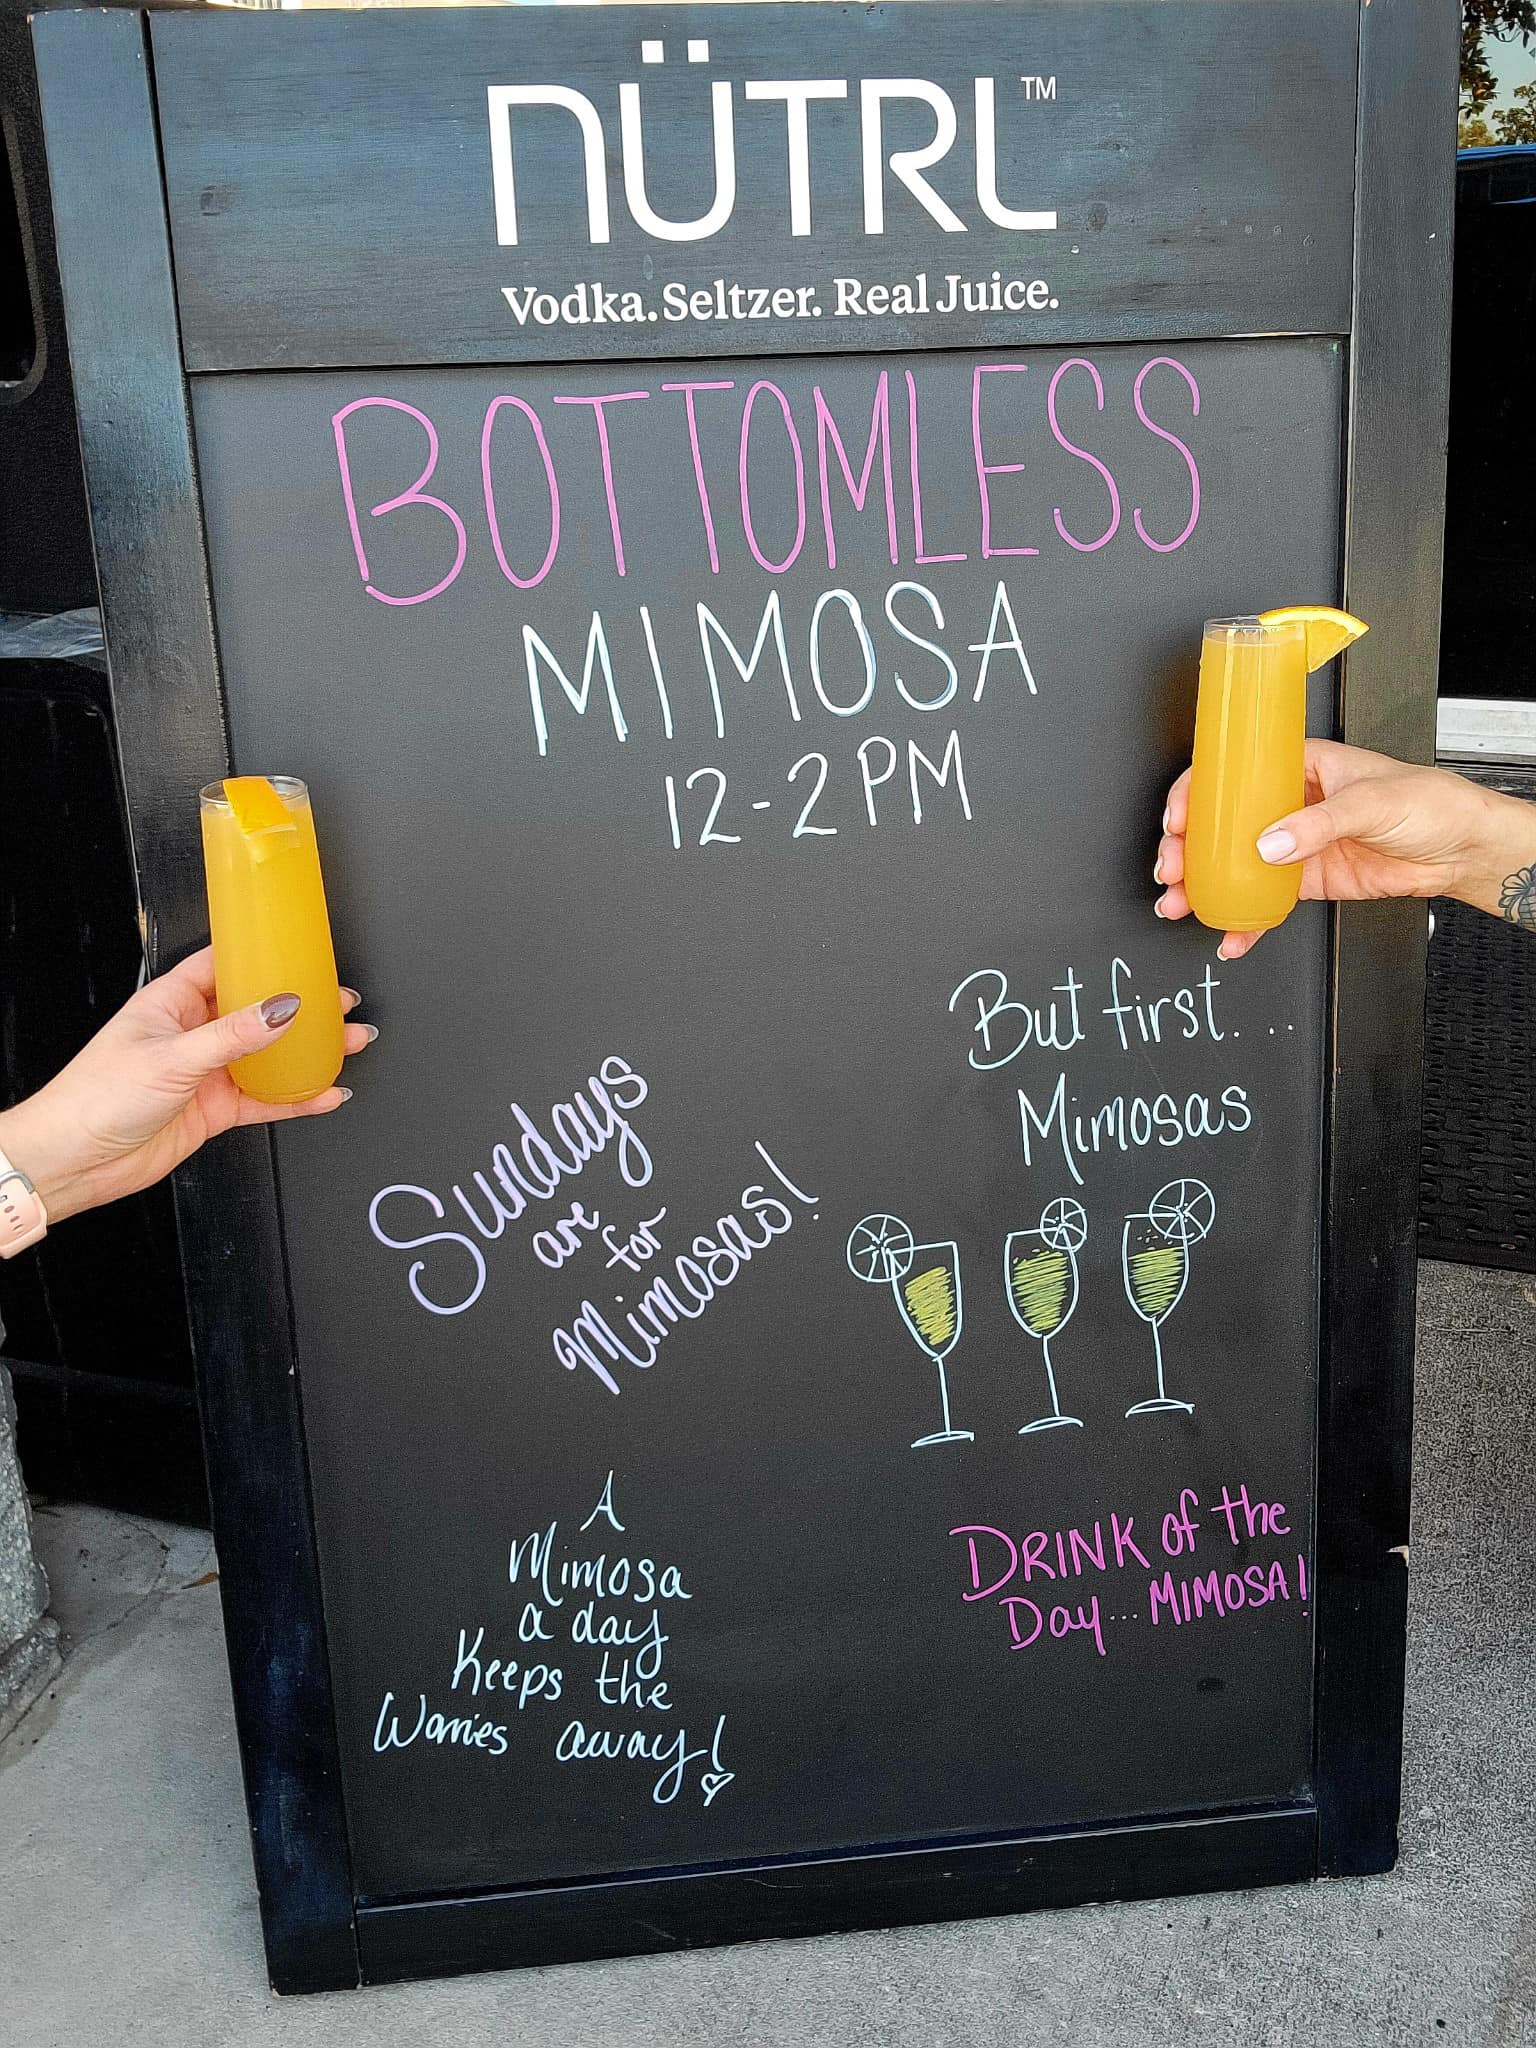 NÜTRL™
Vodka. Seltzer. Real Juice.
BOTTOMLESS
MIMOSA
12-2PM
But first...
Mimosas
Sundays
are
for
Mimosas!
A
Mimosa
a day
Keeps the
Worries away!
DRINK of the
Day... MIMOSA!